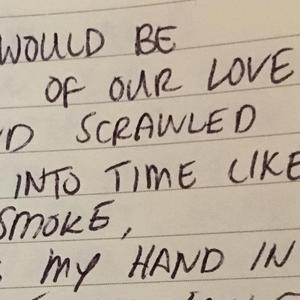 WOULD BE
OF OUR LOVE
SCRAWLED
INTO TIME LIKE
SMOKE,
MY HAND IN